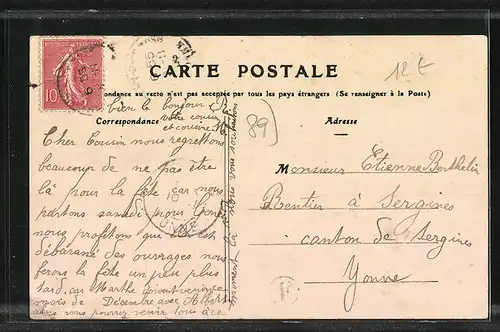 10
12 €
CARTE POSTALE
ondance au recto n'est pas acceptée par tous les pays étrangers (Se renseigner à la Poste)
Correspondance
Adresse
bien le bonjour
votre cousin
et cousine
89
Cher Cousin nous regrettons
beaucoup de ne pas être
là pour la fête car nous
partons samedi pour
nous profitons que
débarassé des ouvrages nous
ferons la fête un peu plus
tard car Marthe doivent venir
mois de Décembre avec Albert
vous pourrez venir tous
Monsieur Etienne Berthelin
Rentier à Sergines
canton de Sergines
Yonne
YONNE